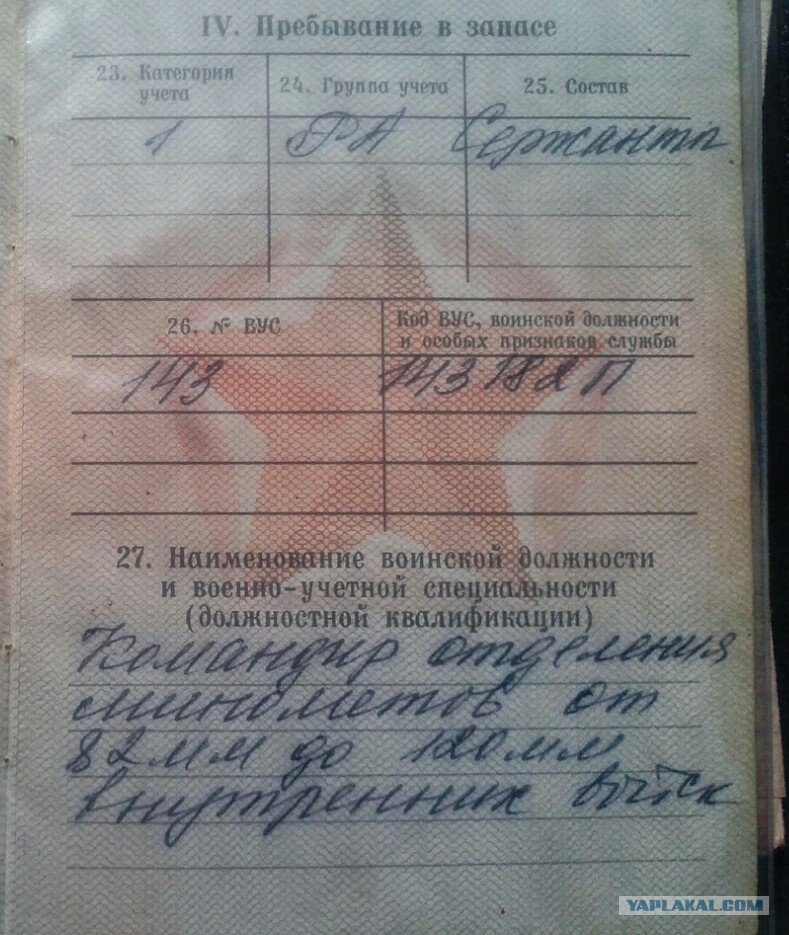 IV. Пребывание в запасе
23. Категория учета
24. Группа учета
25. Состав
1 РА Сержанты
26. № ВУС
Код ВУС, воинской должности
и особых признаков службы
143 143 182 П
27. Наименование воинской должности
и военно-учетной специальности
(должностной квалификации)
Командир отделения
минометов от
82 мм до 120 мм
внутренних войск
YAPLAKAL.COM